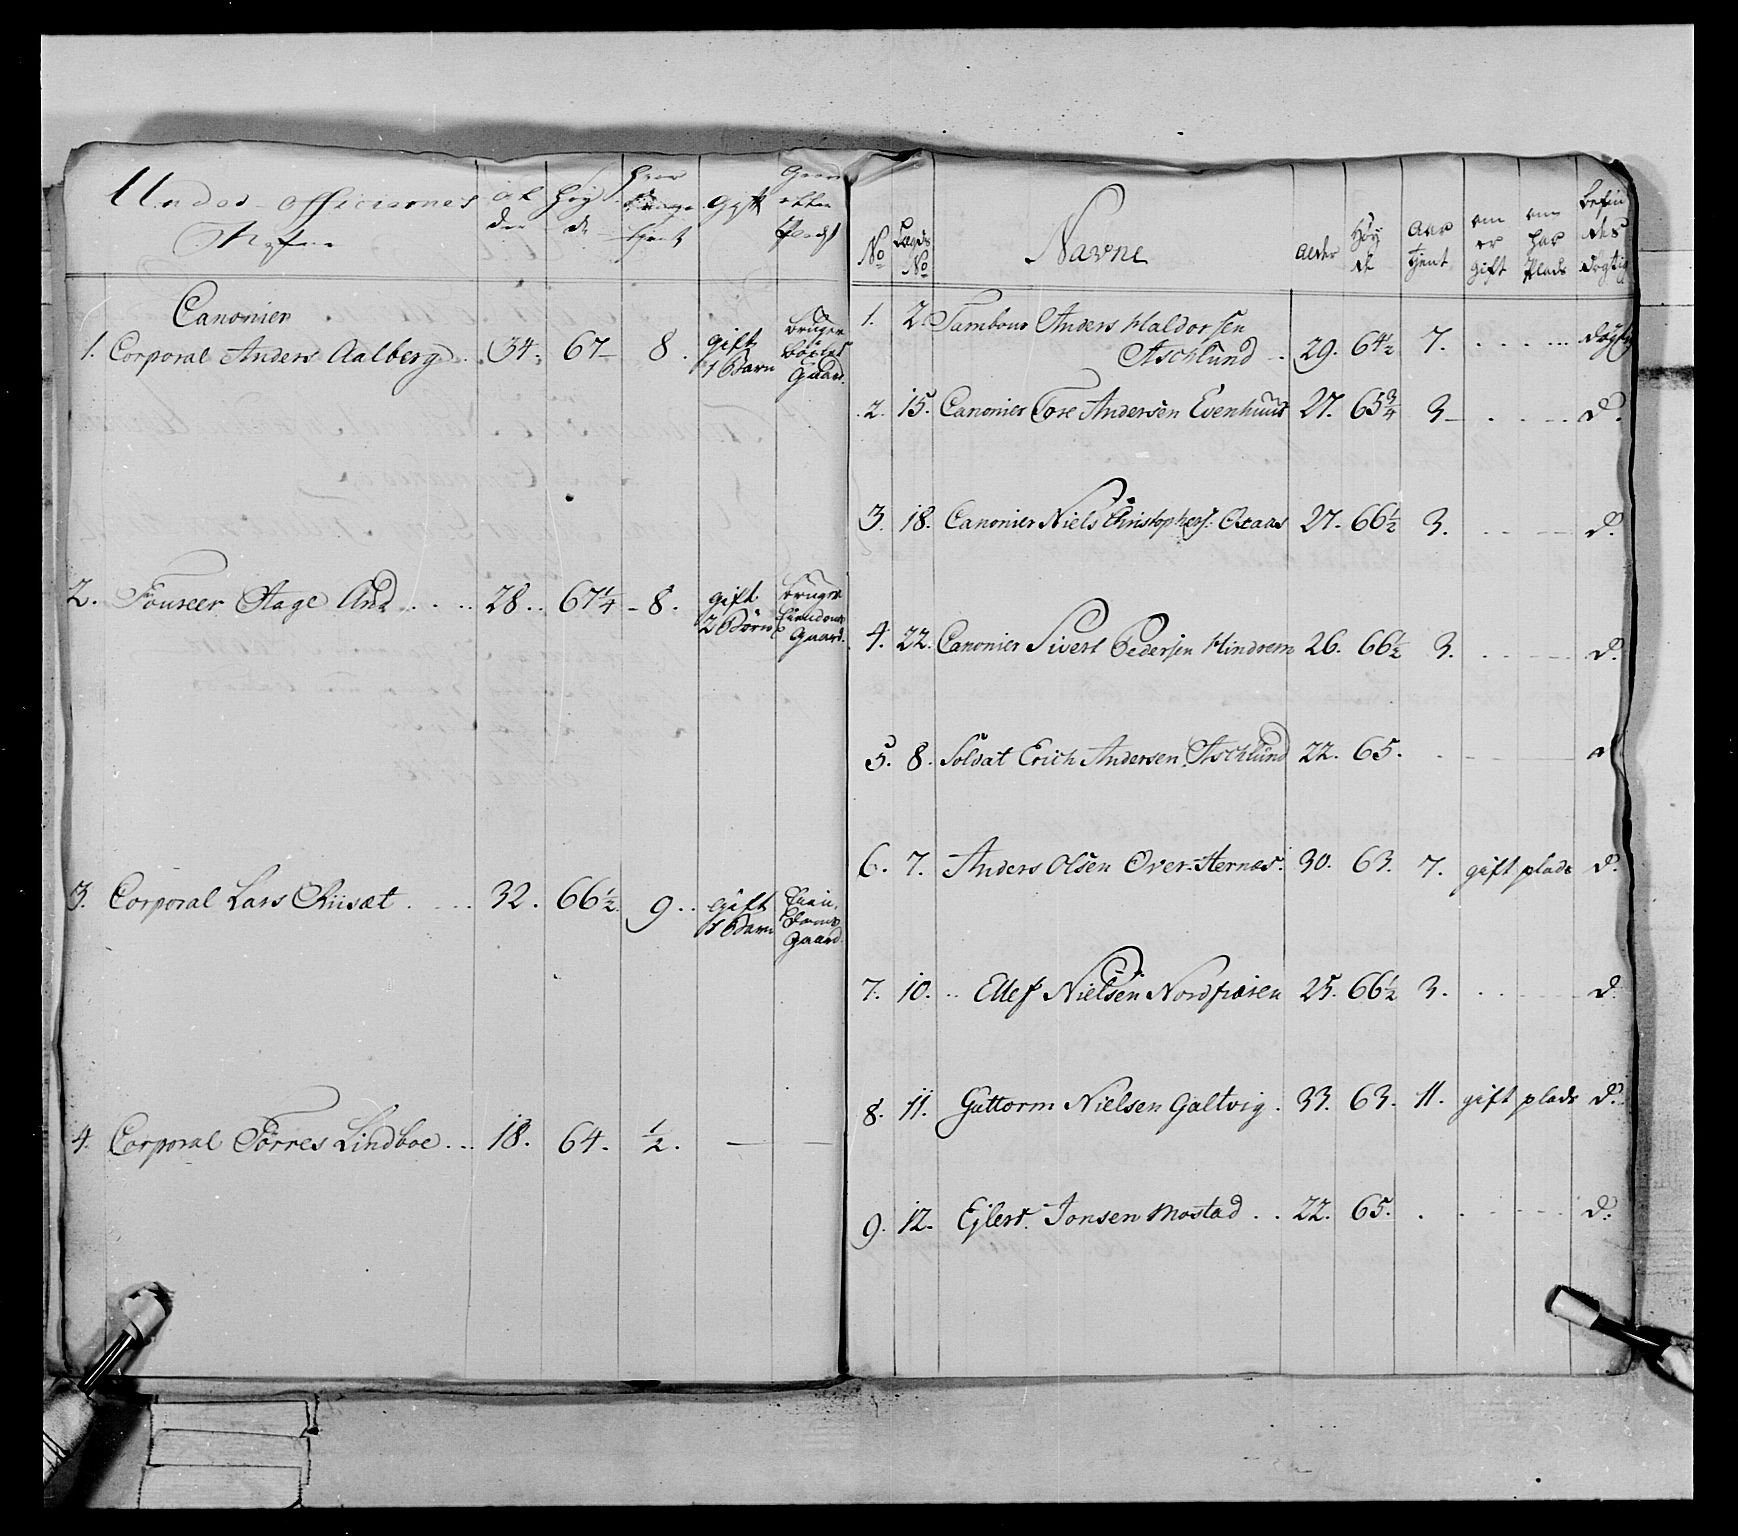 Under officierernes Al der Høy de gift
Nafne
Canonier
1. Corporal Anders Aalberg 34. 67 8. gift 1 Barn bruger bøxlet Gaard
2. Foureer Aage Aræ 28. 67¼ 8. gift 2 Børn bruger Eiendoms Gaard
3. Corporal Lars Riisæt 32. 66½ 9. gift 1 Barn Eien doms Gaard
4. Corporal Tørres Lindboe 18. 64. ½. — —
No Lægds No Navne Alder Høy de Aar tient om er gift om har Plads befin des dygtig
1. 2. Tambour Anders Haldorsen
Aschlund 29. 64½ 7. dygtig
2. 15. Canonier Tore Andersen Evenhuus 27. 65¾ 3 d.
3. 18. Canonier Niels Christophers: 27. 66½ 3. d.
4. 22. Canonier Sivert Pedersen Hindrem 26. 66½ 3. d.
5. 8. Soldat Erich Andersen Aschlund 22. 65. d
6. 7. Anders Olsen Over-Hernæs. 30. 63. 7. gift plads d.
7. 10. Ellef Nielsen Nordfiæren 25. 66½ 3. d.
8. 11. Guttorm Nielsen Galtvig. 33. 63. 11. gift plads d.
9. 12. Ejlert Jonsen Mostad 22. 65. d.